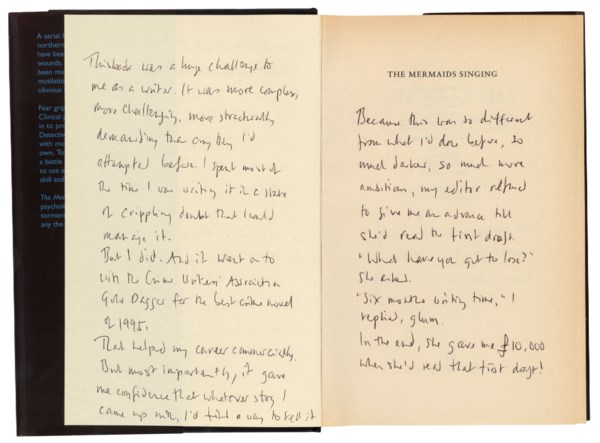 A serial
northern
have bee
wounds,
been mo
mutilation
obvious
Fear grip
Clinical
in to pro
Detective
with mo
own, To
a battle
to use a
skill and
The Mer
psychol
torment
any the
This book was a huge challenge to
me as a writer. It was more complex,
more challenging, more structurally
demanding than anything I'd
attempted before. I spent most of
the time I was writing it in a state
of crippling doubt that I could
manage it.
But I did. And it went on to
win the Crime Writers' Association
Gold Dagger for the best crime novel
of 1995.
That helped my career commercially.
But most importantly, it gave
me confidence that whatever story I
came up with, I'd find a way to tell it
THE MERMAIDS SINGING
Because this was so different
from what I'd done before, so
much darker, so much more
ambitious, my editor refused
to give me an advance till
she'd read the first draft.
"What have you got to lose?"
she asked.
"Six months writing time," I
replied, glum.
In the end, she gave me £10,000
when she'd read that first draft!